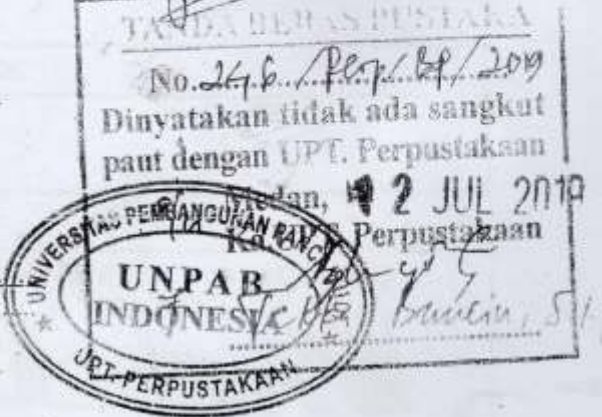 TANDA BEBAS PUSTAKA
No. 2676/Perp/BP/2019
Dinyatakan tidak ada sangkut
paut dengan UPT. Perpustakaan
Medan, 12 JUL 2019
Ka. UPT Perpustakaan
UNIVERSITAS PEMBANGUNAN PANCA BUDI
UNPAB
INDONESIA
UPT. PERPUSTAKAAN